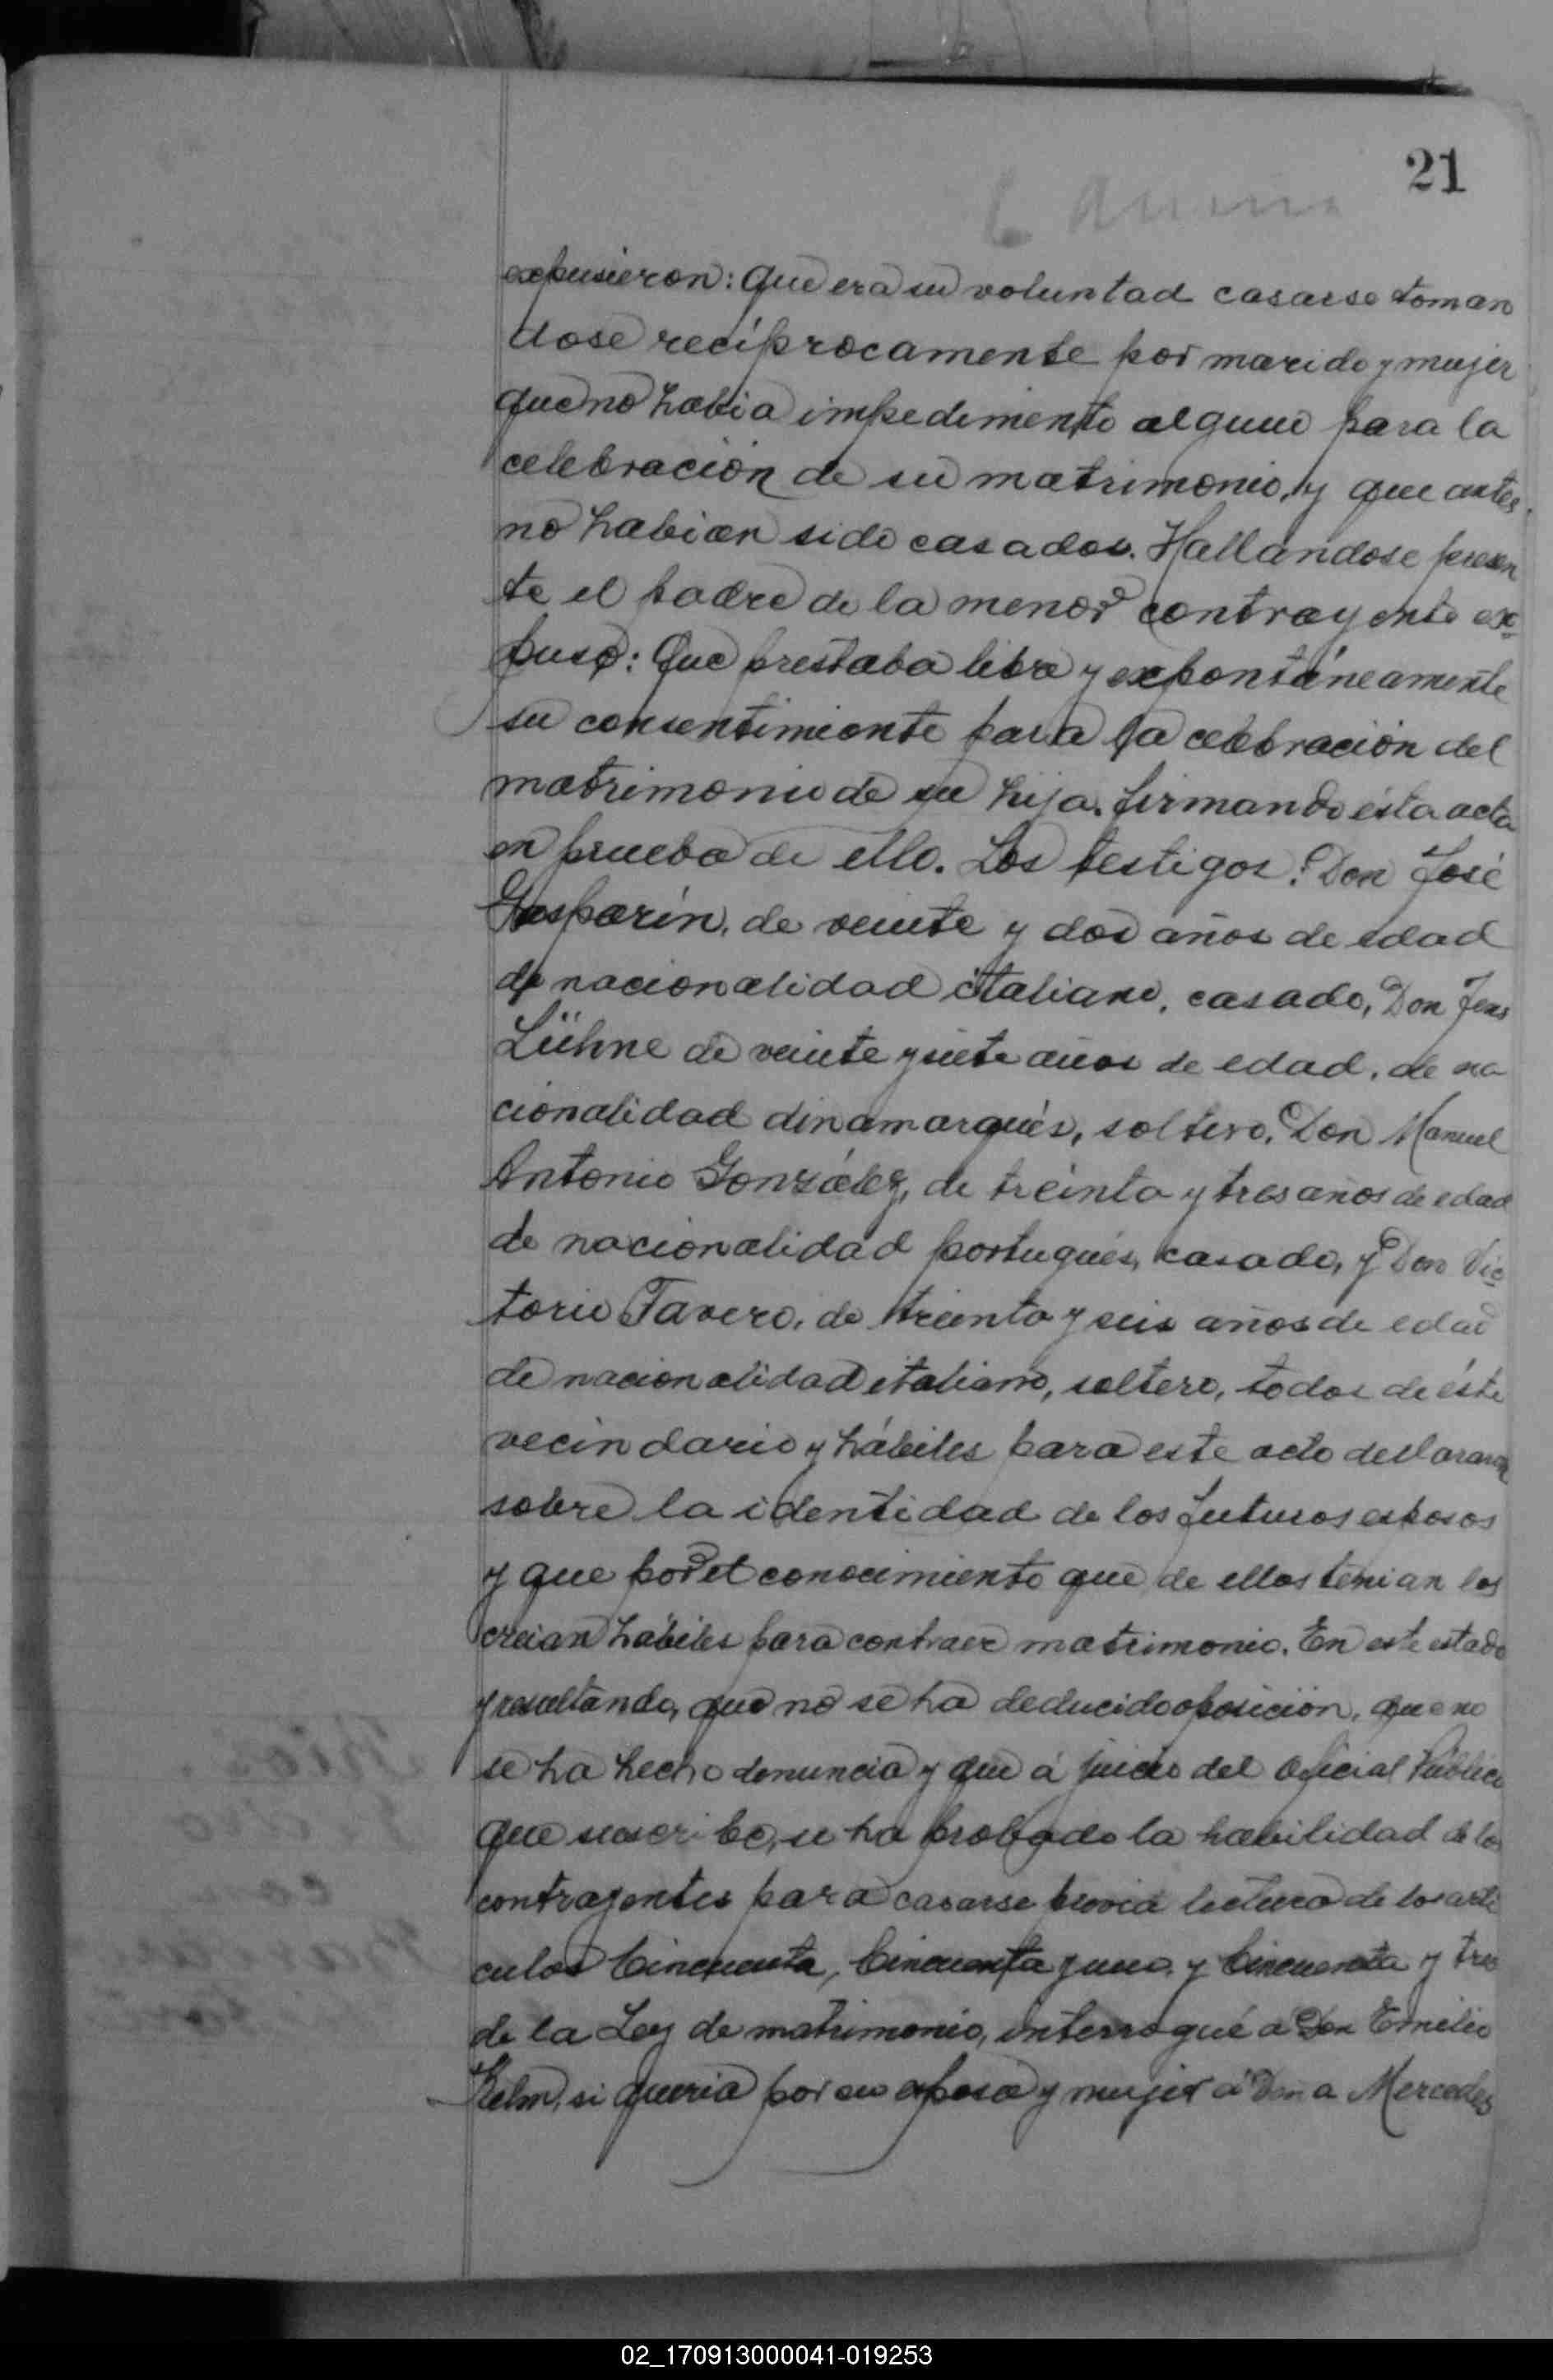 21
expusieron: Que era su voluntad casarse toman
dose recíprocamente por marido y mujer
que no habia impedimento alguno para la
celebración de su matrimonio, y que antes
no habian sido casados. Hallandose presen
te el padre de la menor contrayente ex-
puso: Que prestaba libre y expontáneamente
su consentimiento para la celebración del
matrimonio de su hija. firmando ésta acta
en prueba de ello. Los testigos: Don José
Gasparín, de veinte y dos años de edad
de nacionalidad italiano, casado, Don Jens
Lühne de veinte y siete años de edad, de na
cionalidad dinamarqués, soltero, Don Manuel
Antonio González, de treinta y tres años de edad
de nacionalidad portugués, casado, y Don Vic-
torio Tavero, de treinta y seis años de edad
de nacionalidad italiano, soltero, todos de éste
vecindario y hábiles para este acto declararon
sobre la identidad de los futuros esposos
y que por el conocimiento que de ellos tenian los
creian hábiles para contraer matrimonio. En este estado
y resultando, que no se ha deducido oposición, que no
se ha hecho denuncia y que á juicio del Oficial Público
que suscribe, se ha probado la habilidad de los
contrayentes para casarse previa lectura de los artí
culos Cincuenta, Cincuenta y uno, y Cincuenta y tres
de la Ley de matrimonio, interrogué á Don Emilio
Kelm, si queria por su esposa y mujer á Dña Mercedes
02_170913000041-019253